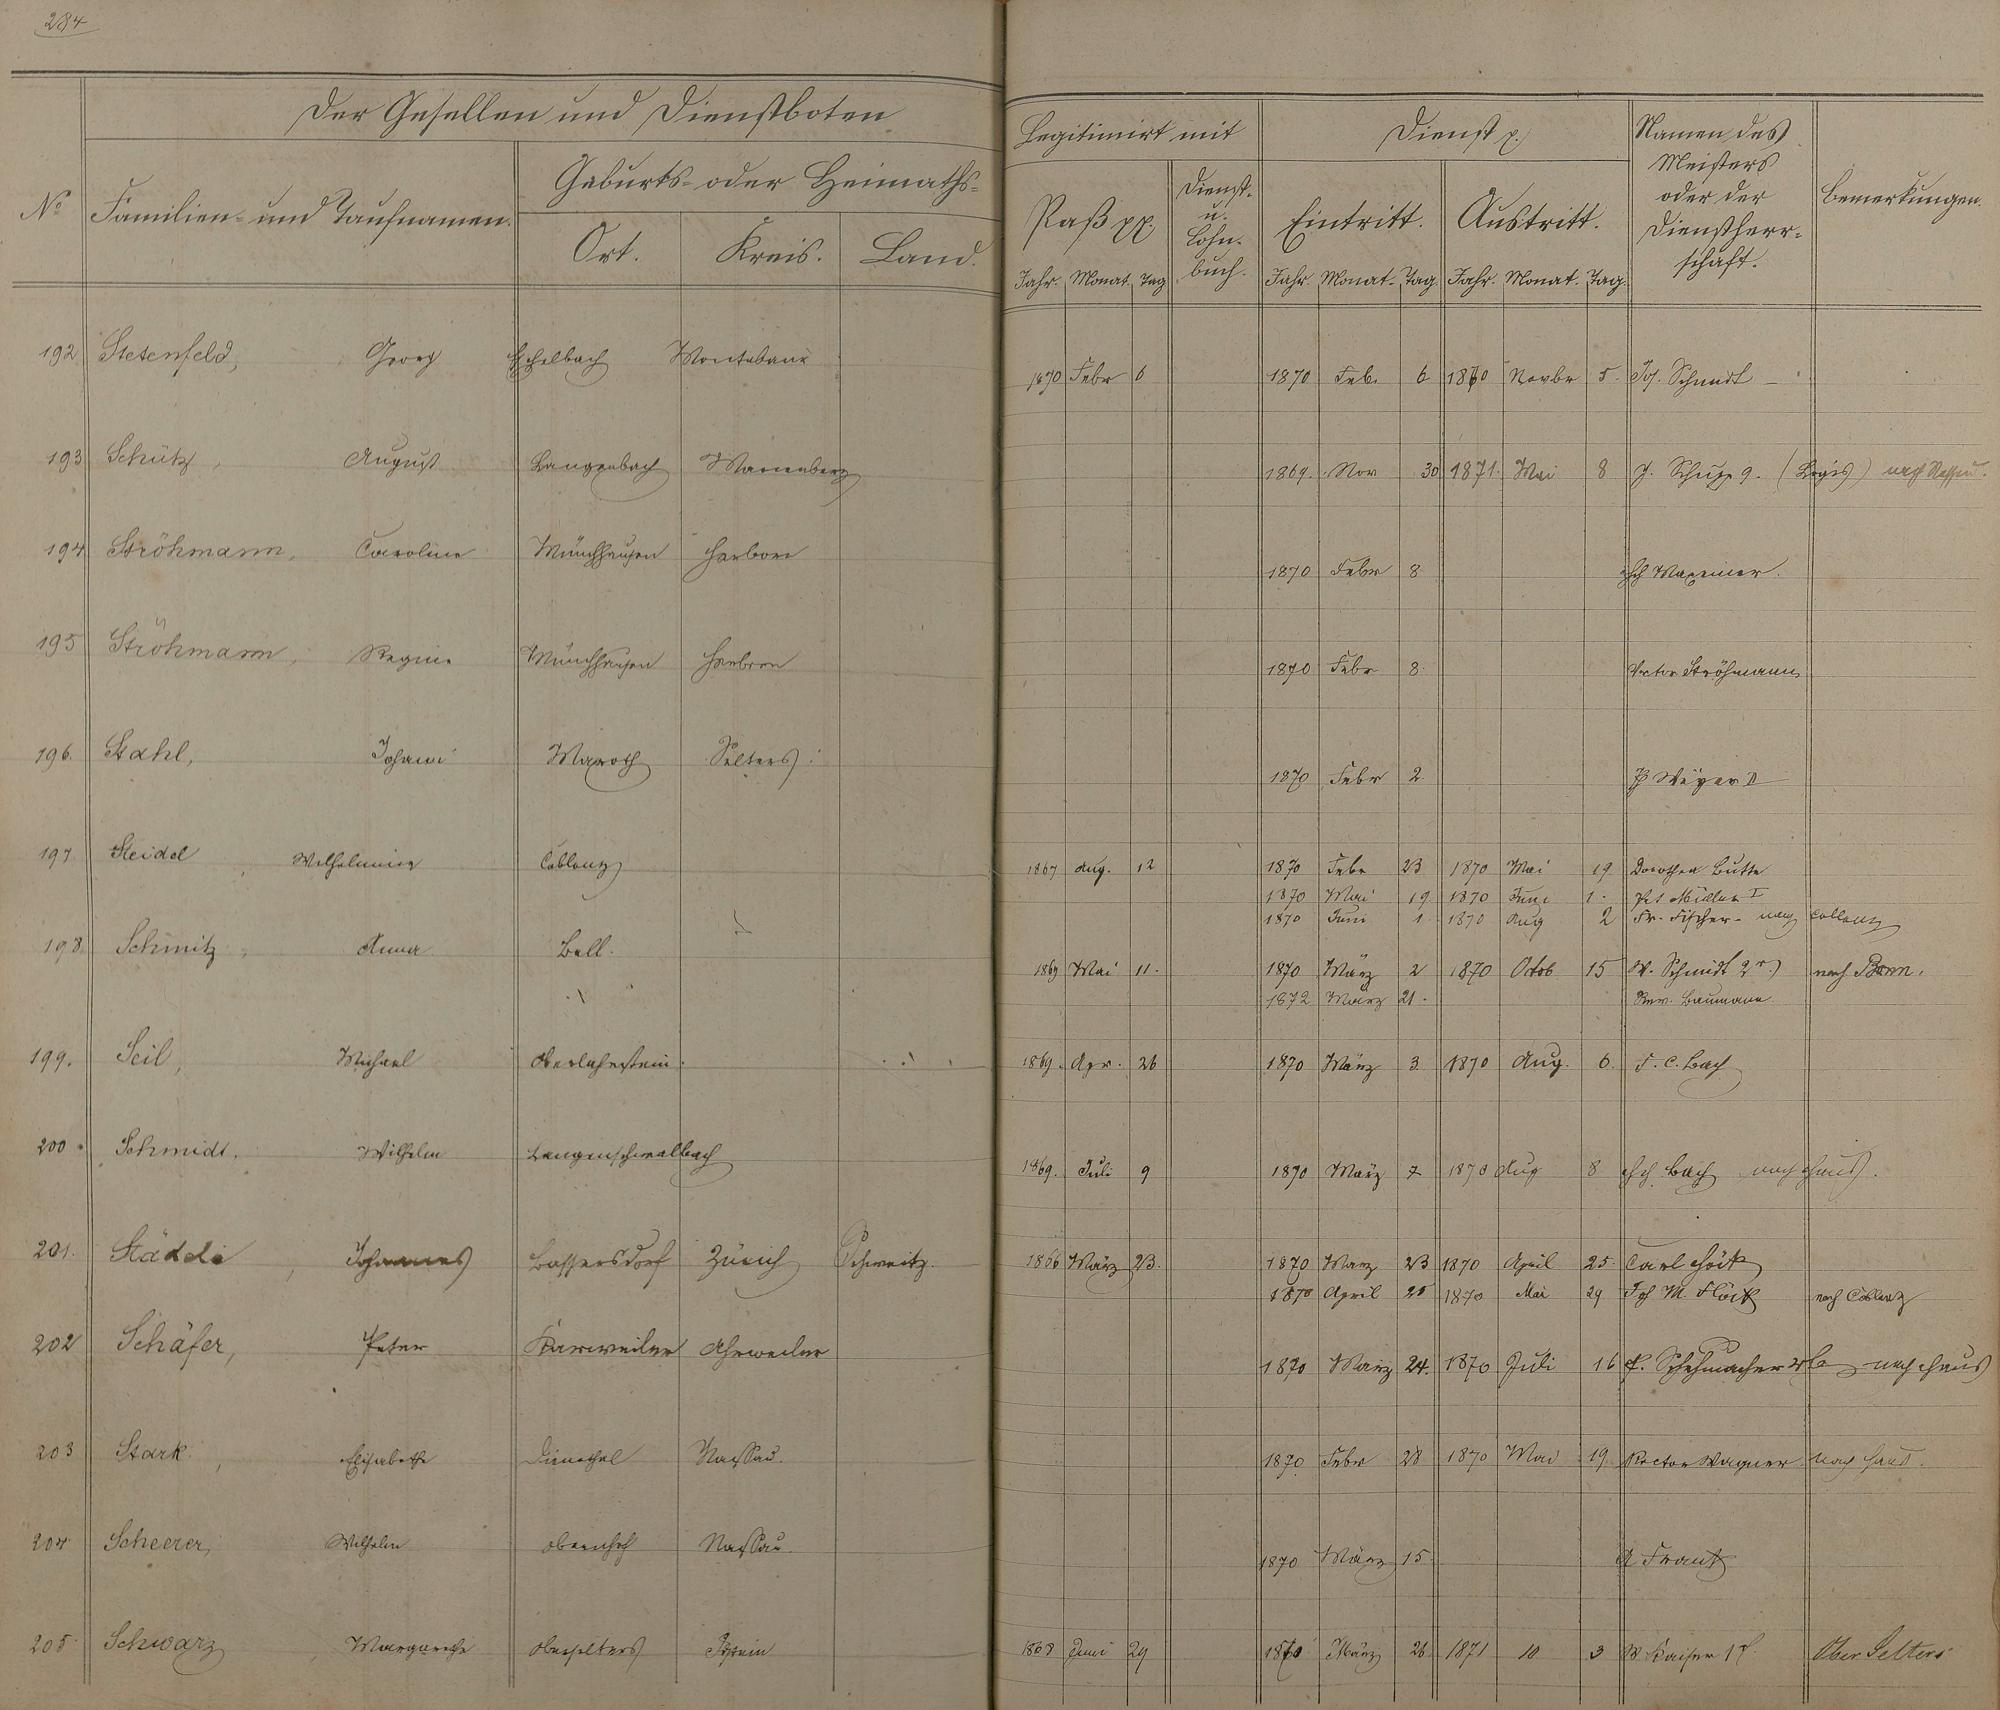 284
Der Gesellen und Dienstboten
Legitimirt mit
Dienst p.
Namen des Meisters oder der Dienstherrschaft.
Bemerkungen.
No
Familien- und Taufnamen.
Geburts- oder Heimaths-
Ort. Kreis. Land.
Paß pp.
Dienst- u. Lohn-buch.
Eintritt. Austritt.
Jahr. Monat. Tag Jahr. Monat. Tag. Jahr. Monat. Tag.
192 Stetenfeld, Georg Montabaur 1870 Febr 6 1870 Feb. 6 1870 Novbr 5. Jos. Schmidt
193 Schütz, August Langenbach Marienberg 1869. Nov 30 1871. Mai 8 J. Schupp 9. (Logis) nach
194 Ströhmann, Caroline Münchhausen Herborn 1870 Febr 8
195 Ströhmann, Regine Münchhausen Herborn 1870 Febr 8. Rector Ströhmann
196. Stahl, Johann Maxroth Selters 1870 Febr 2
197 Steidel, Wilhelmine Coblenz 1867 Aug. 12 1870 Febr 23 1870 Mai 19 Dorothea Butte
1870 Mai 19 1870 Juni 1. Pet Müller I
1870 Juni 1 1870 Aug 2 Fr. Fischer- nach Coblenz
198 Schmitz, Anna Bell. 1869 Mai 11. 1870 März 2 1870 Octob 15 W. Schmidt 2r. nach Bonn.
1872 März 21. Baumann
199. Seil, Michael Oberlahnstein. 1869. Apr. 26 1870 März 3. 1870 Aug. 6. F. C. Bach
200 Schmidt, Wilhelm Langenschwalbach 1869. Juli 9 1870 März 7 1870 Aug 8 Hch Bach nach Haus.
201. Städeli, Johannes Bassersdorf Zürich Schweitz. 1866 März 23. 1870 März 23 1870 April 25 Carl
1870 April 25 1870 Mai 29 Joh M. Flöck nach Coblenz
202 Schäfer, Peter Karweiler Ahrweiler 1870 März 24. 1870 Juli 16 P. Schuhmacher nach Haus
203 Stark, Elisabethe Dienethal Nassau. 1870 Febr 28 1870 Mai 19 Rector Wagner nach Haus.
204 Scheerer, Wilhelm Obernhof Nassau. 1870 März 15
205 Schwarz, Margarethe Oberselters Idstein 1868 Juni 29 1870 März 26 1871 10 3 W Kaiser 1r. Ober Selters